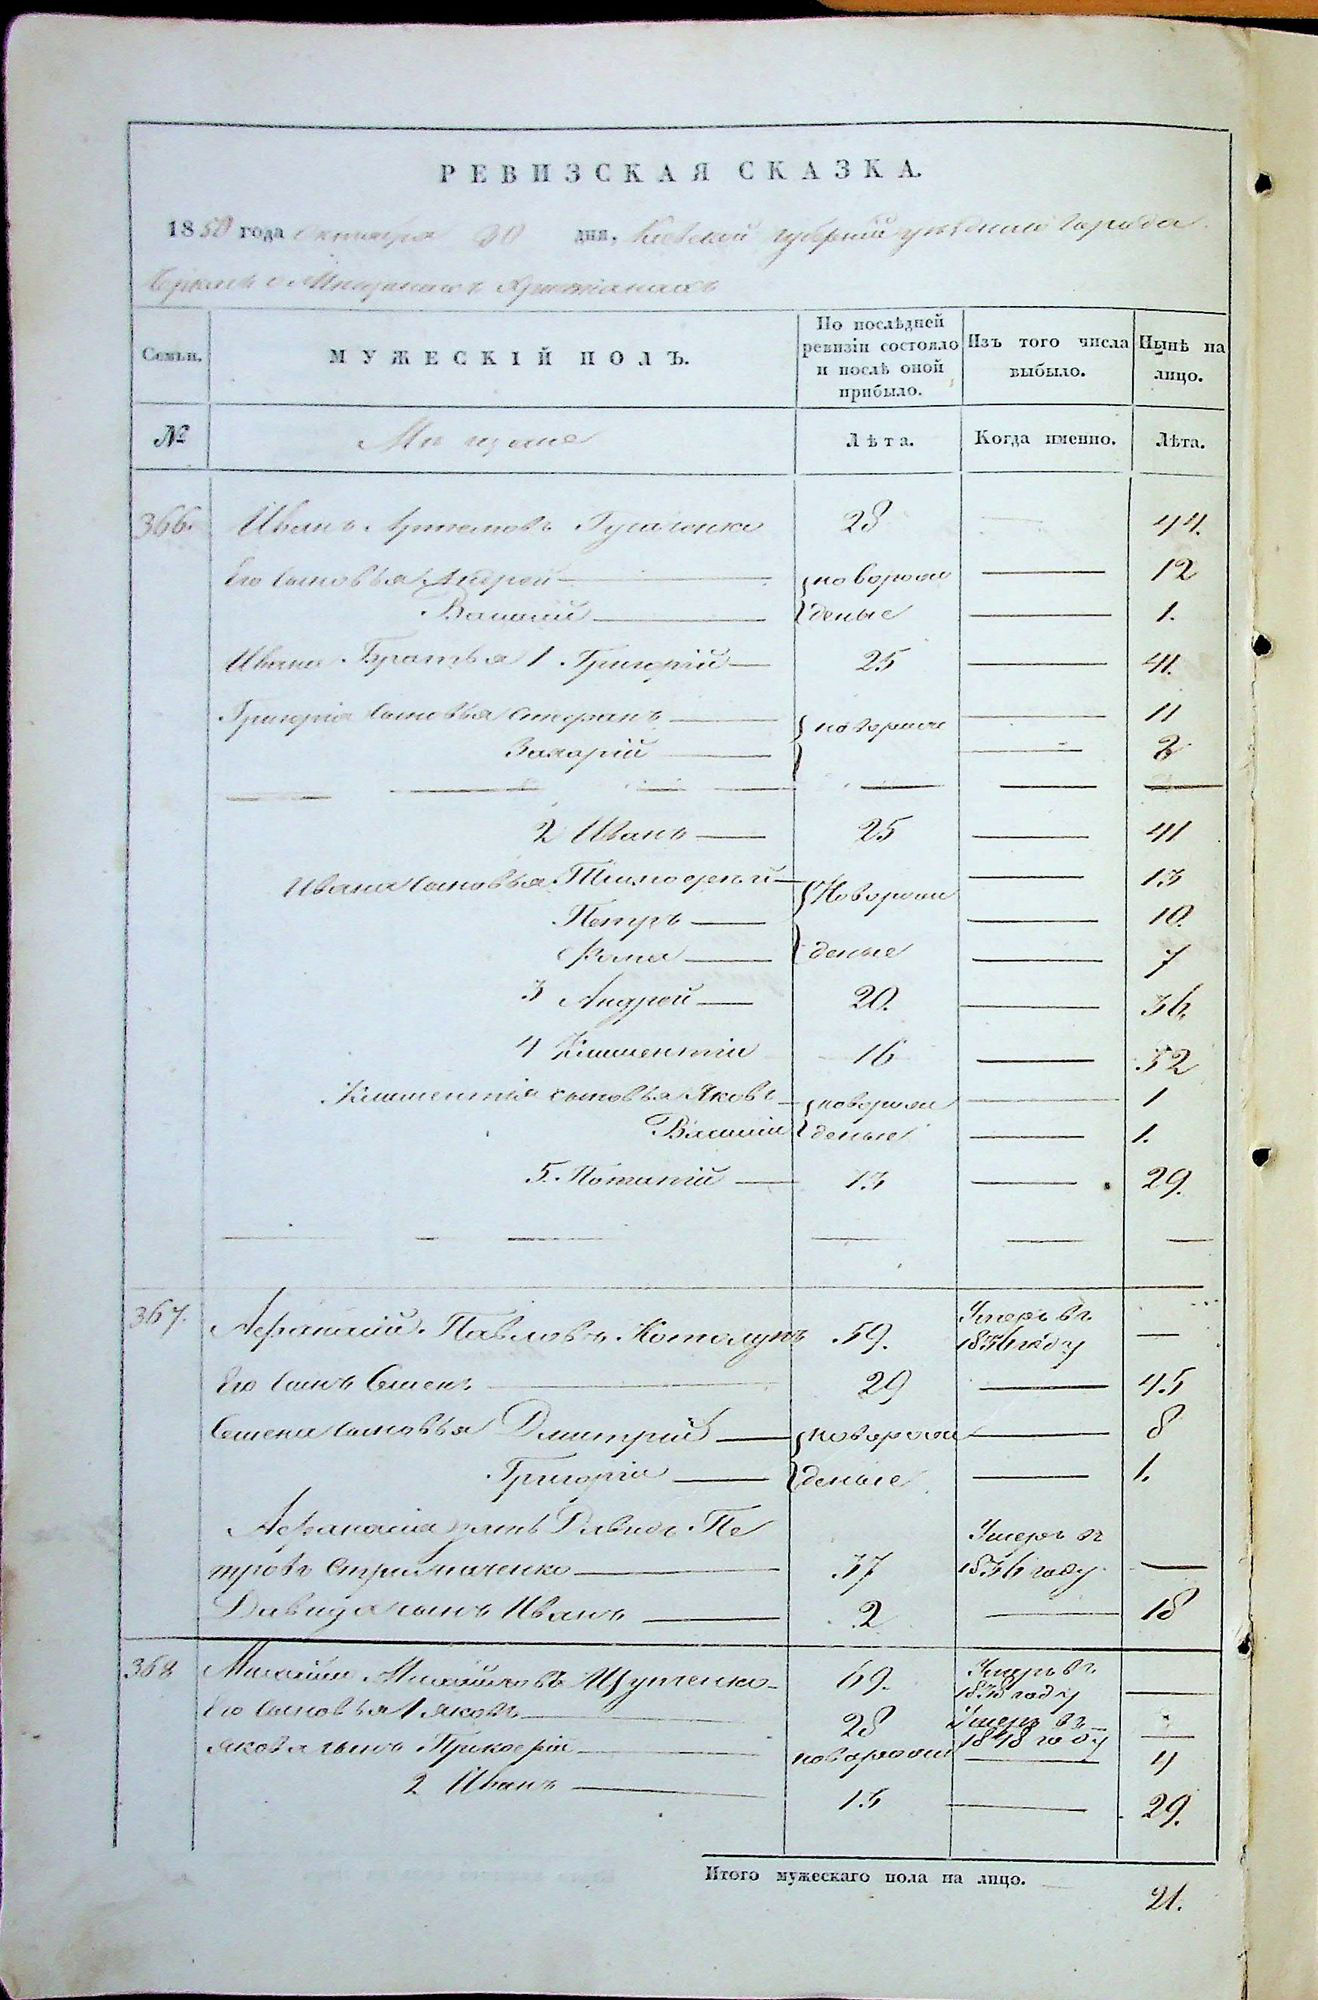 РЕВИЗСКАЯ СКАЗКА.
1850 года Октября 30 дня, Кіевской губерніи уѣзднаго города
Черкасъ о Мѣщанахъ Христіанахъ
Семьи. МУЖЕСКІЙ ПОЛЪ. По послѣдней ревизіи состояло и послѣ оной прибыло. Изъ того числа выбыло. Нынѣ на лицо.
№ Мѣщане Лѣта. Когда именно. Лѣта.
366. Иванъ Артемовъ 28 — 44.
Его сыновья Андрей — новорож — 12
Василій — деные — 1.
Ивана Братья 1 Григорій — 25 — 41.
Григорія сыновья Стефанъ — новорож — 11
Захарій — — 2
2 Иванъ — 25 — 41
Ивана сыновья Тимофей — Новорож — 13
Петръ — — 10.
Фома — деные — 7
3 Андрей — 20. — 36.
4 Климентій 16 — 32
Климентія сыновья Яковъ — новорож — 1
Василій деные — 1.
5. Потапій — 13 — 29.
367. Афанасій Павловъ 59. Умеръ въ 1836 году —
Его сынъ Семенъ — 29 — 45
Семена сыновья Дмитрій — новорож — 8
Григорій — деные — 1.
Афанасія зять Давидъ Пе
тровъ — 37 Умеръ въ 1836 году —
Давида сынъ Иванъ — 2 — 18
368 Михайла Михайловъ 69. Умеръ въ 1838 году —
Его сыновья 1 Яковъ — 28 Умеръ въ 1848 году —
Якова сынъ Прокофій — новорож — 11
2 Иванъ — 13 — 29.
Итого мужескаго пола на лицо. 21.